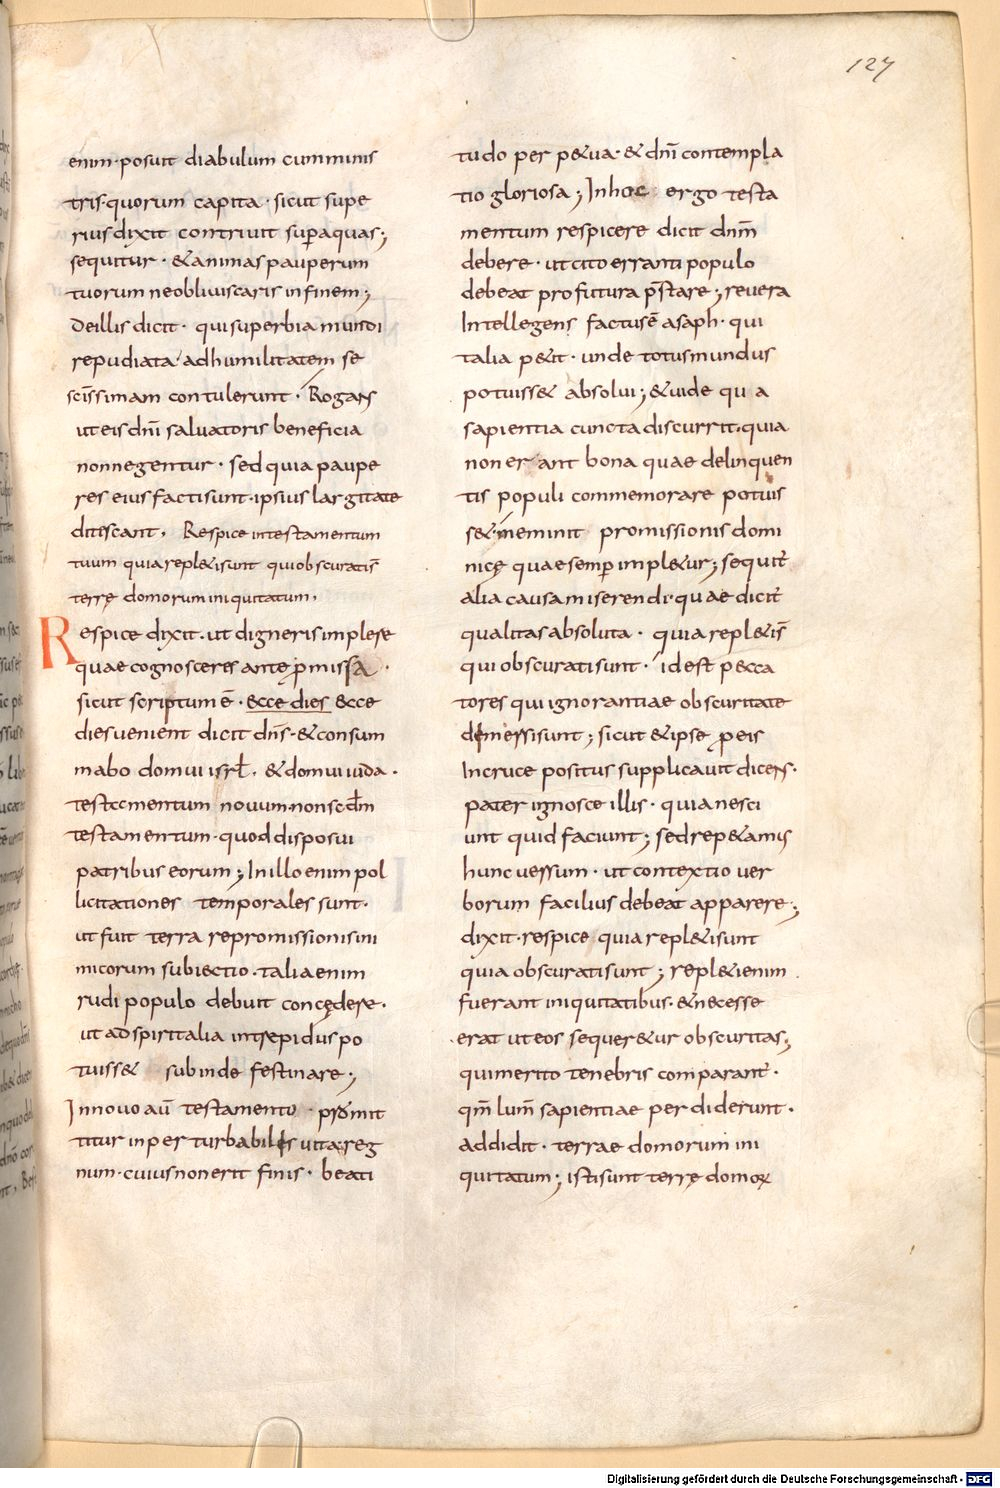 127
enim·posuit diabulum cumminis
tris·quorum capita·sicut supe
rius dixit contriuit sup aquas;
sequitur·&animas pauperum
tuorum neobliuiscaris infinem;
Deillis dicit· qui superbia mundi
repudiata adhumilitatem se
scissimam contulerunt· Rogans
uteis dn̄i saluatoris beneficia
nonnegentur· sed quia paupe
res eius factisunt·ipsius largitate
ditescant. Respice intestamentum
tuum quia repl&isunt quiobscuratis̄
terrę domorum iniquitatum.
Respice dixit·ut digneris implere
quae cognosceris ante p̄missa·
sicut scriptum ē·ecce dies ecce
dies uenient dicit dn̄s·&consum
mabo domui isrl̄. &domui iuda·
testamentum nouum·nonscd̄m
testamentum·quod disposui
patribus eorum; Inillo enim pol
licitationes temporales sunt·
ut fuit terra repromissionis ini
micorum subiectio·talia enim
rudi populo debuit concędere·
ut ad spiritalia intrepidus po
tuiss& subinde festinare;
Innouo aū testamento promit
titur inperturbabilis uita·reg
num·cuius nonerit finis· beati
tudo perp&ua·&dn̄i contempla
tio gloriosa; Inhoc ergo testa
mentum respicere dicit dn̄m
debere· ut cito erranti populo
debeat profutura p̄stare; reuera
Intellegens factusē asaph· qui
talia p&iit· unde totus mundus
potuiss& absolui; &uide qua
sapientia cuncta discurrit·quia
non erant bona quae delinquen
tis populi commemorare potuis
s&·meminit promissionis domi
nicę quae semp impl&ur; sequit̄
alia causa miserendi·quae dicit̄
qualitas absoluta· quia repl&is̄
qui obscuratisunt· idest pecca
tores qui ignorantiae obscuritate
demersisunt; sicut &ipse p̄eis
Incruce positus supplicauit dicens·
pater ignosce illis· quia nesci
unt quid faciunt; sed rep&amus
hunc uersum· ut contextio uer
borum facilius debeat apparere;
dixit·respice quia repl&isunt
quia obscuratisunt; repl&ienim
fuerant iniquitatibus·&necesse
erat uteos sequer&ur obscuritas;
qui merito tenebris comparant̄·
qm̄ lum̄ sapientiae perdiderunt·
addidit· terrae domorum ini
quitatum; isti sunt terrę domoꝝ
Digitalisierung gefördert durch die Deutsche Forschungsgemeinschaft - DFG